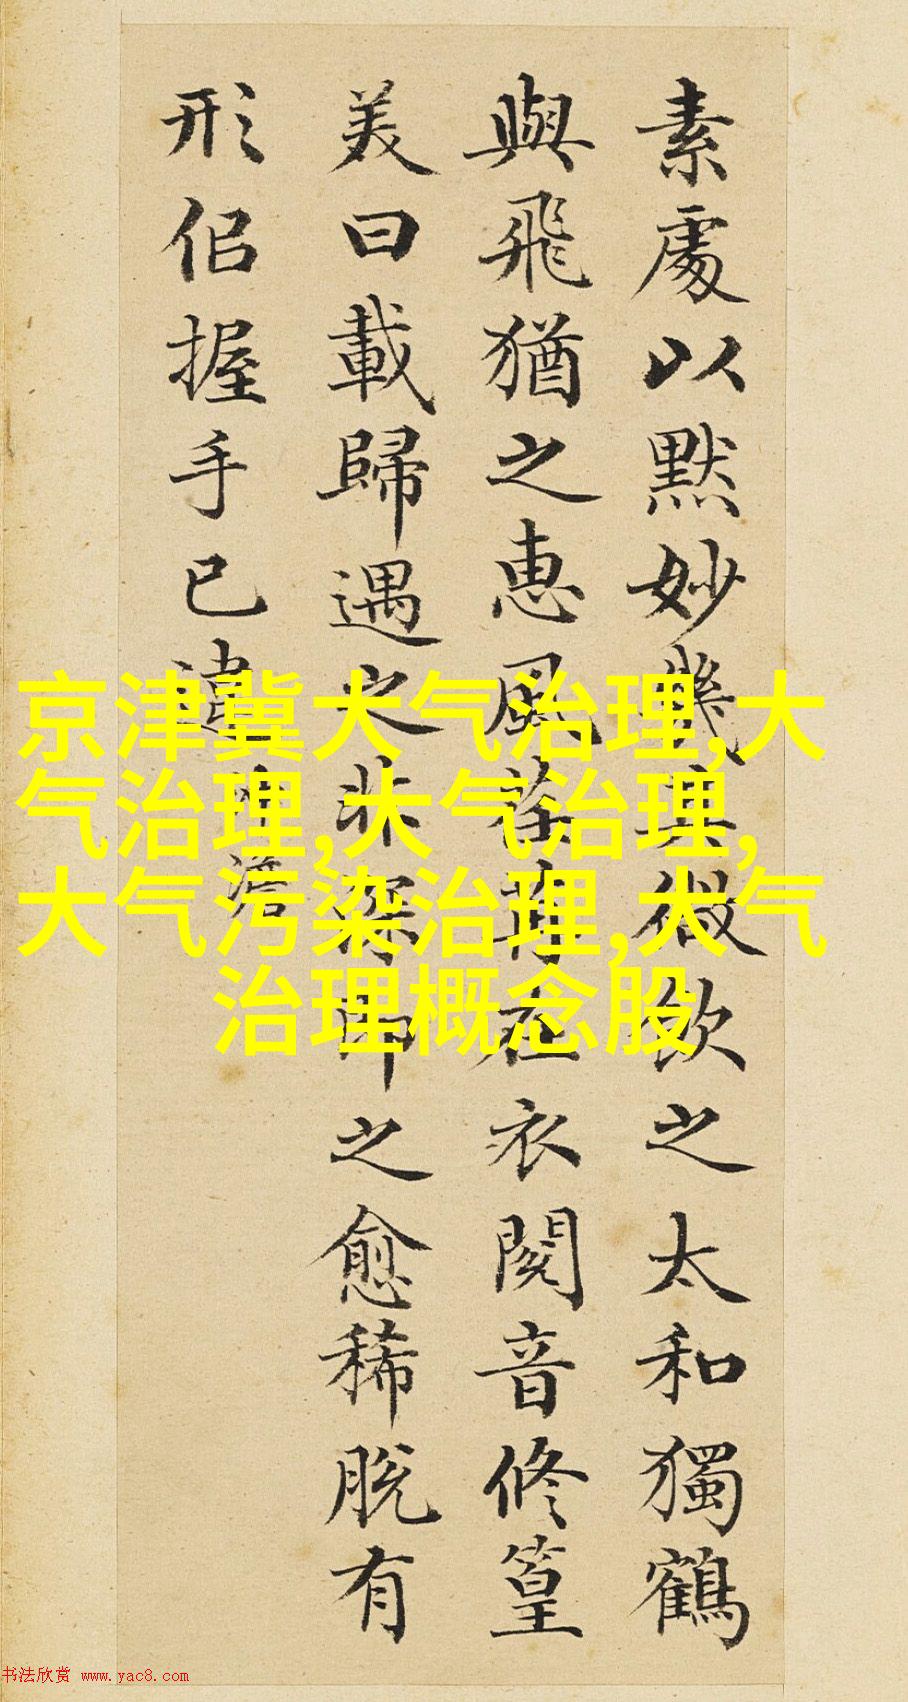 素處以默妙幾其微飲之太和獨鶴
與飛猶之惠風荏苒在衣閱音修篁
美曰載歸遇之非深即之愈稀脫有
形佀握手已違 沖澹
京津冀大气治理,大
气治理,大气治理,
大气污染治理,大气
治理概念股
书法欣赏 www.yac8.com